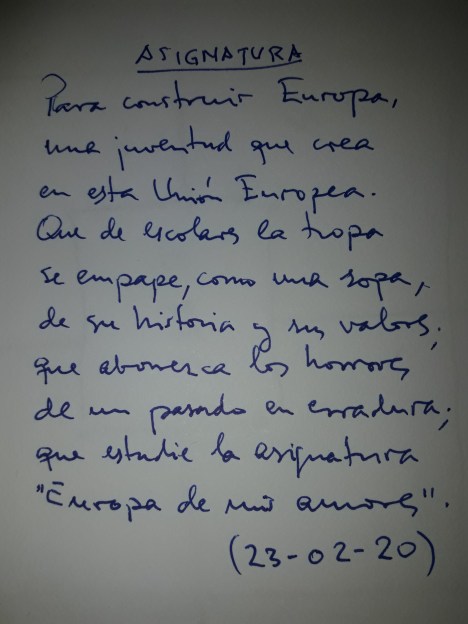 ASIGNATURA
Para construir Europa,
una juventud que crea
en esta Unión Europea.
Que de escolares la tropa
se empape, como una sopa,
de su historia y sus valores;
que aborrezca los horrores
de un pasado en erradura;
que estudie la asignatura
"Europa de mis amores".
(23-02-20)